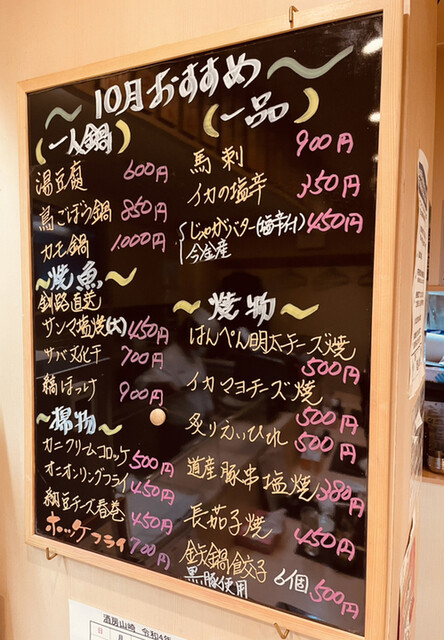 10月おすすめ
一人鍋
湯豆腐 600円
鳥ごぼう鍋 850円
カモ鍋 1000円
焼魚
釧路直送
サンマ塩焼(大) 450円
サバ文化干 700円
縞ほっけ 900円
揚物
カニクリームコロッケ 500円
オニオンリングフライ 450円
納豆チーズ春巻 450円
ホッケフライ 700円
一品
馬刺 900円
イカの塩辛 350円
じゃがバター(塩辛付) 450円
今金産
焼物
はんぺん明太チーズ焼 500円
イカマヨチーズ焼 500円
炙りえいひれ 500円
道産豚串塩焼 380円
長茄子焼 450円
鉄鍋餃子 6個 500円
黒豚使用
酒房山崎 令和4年